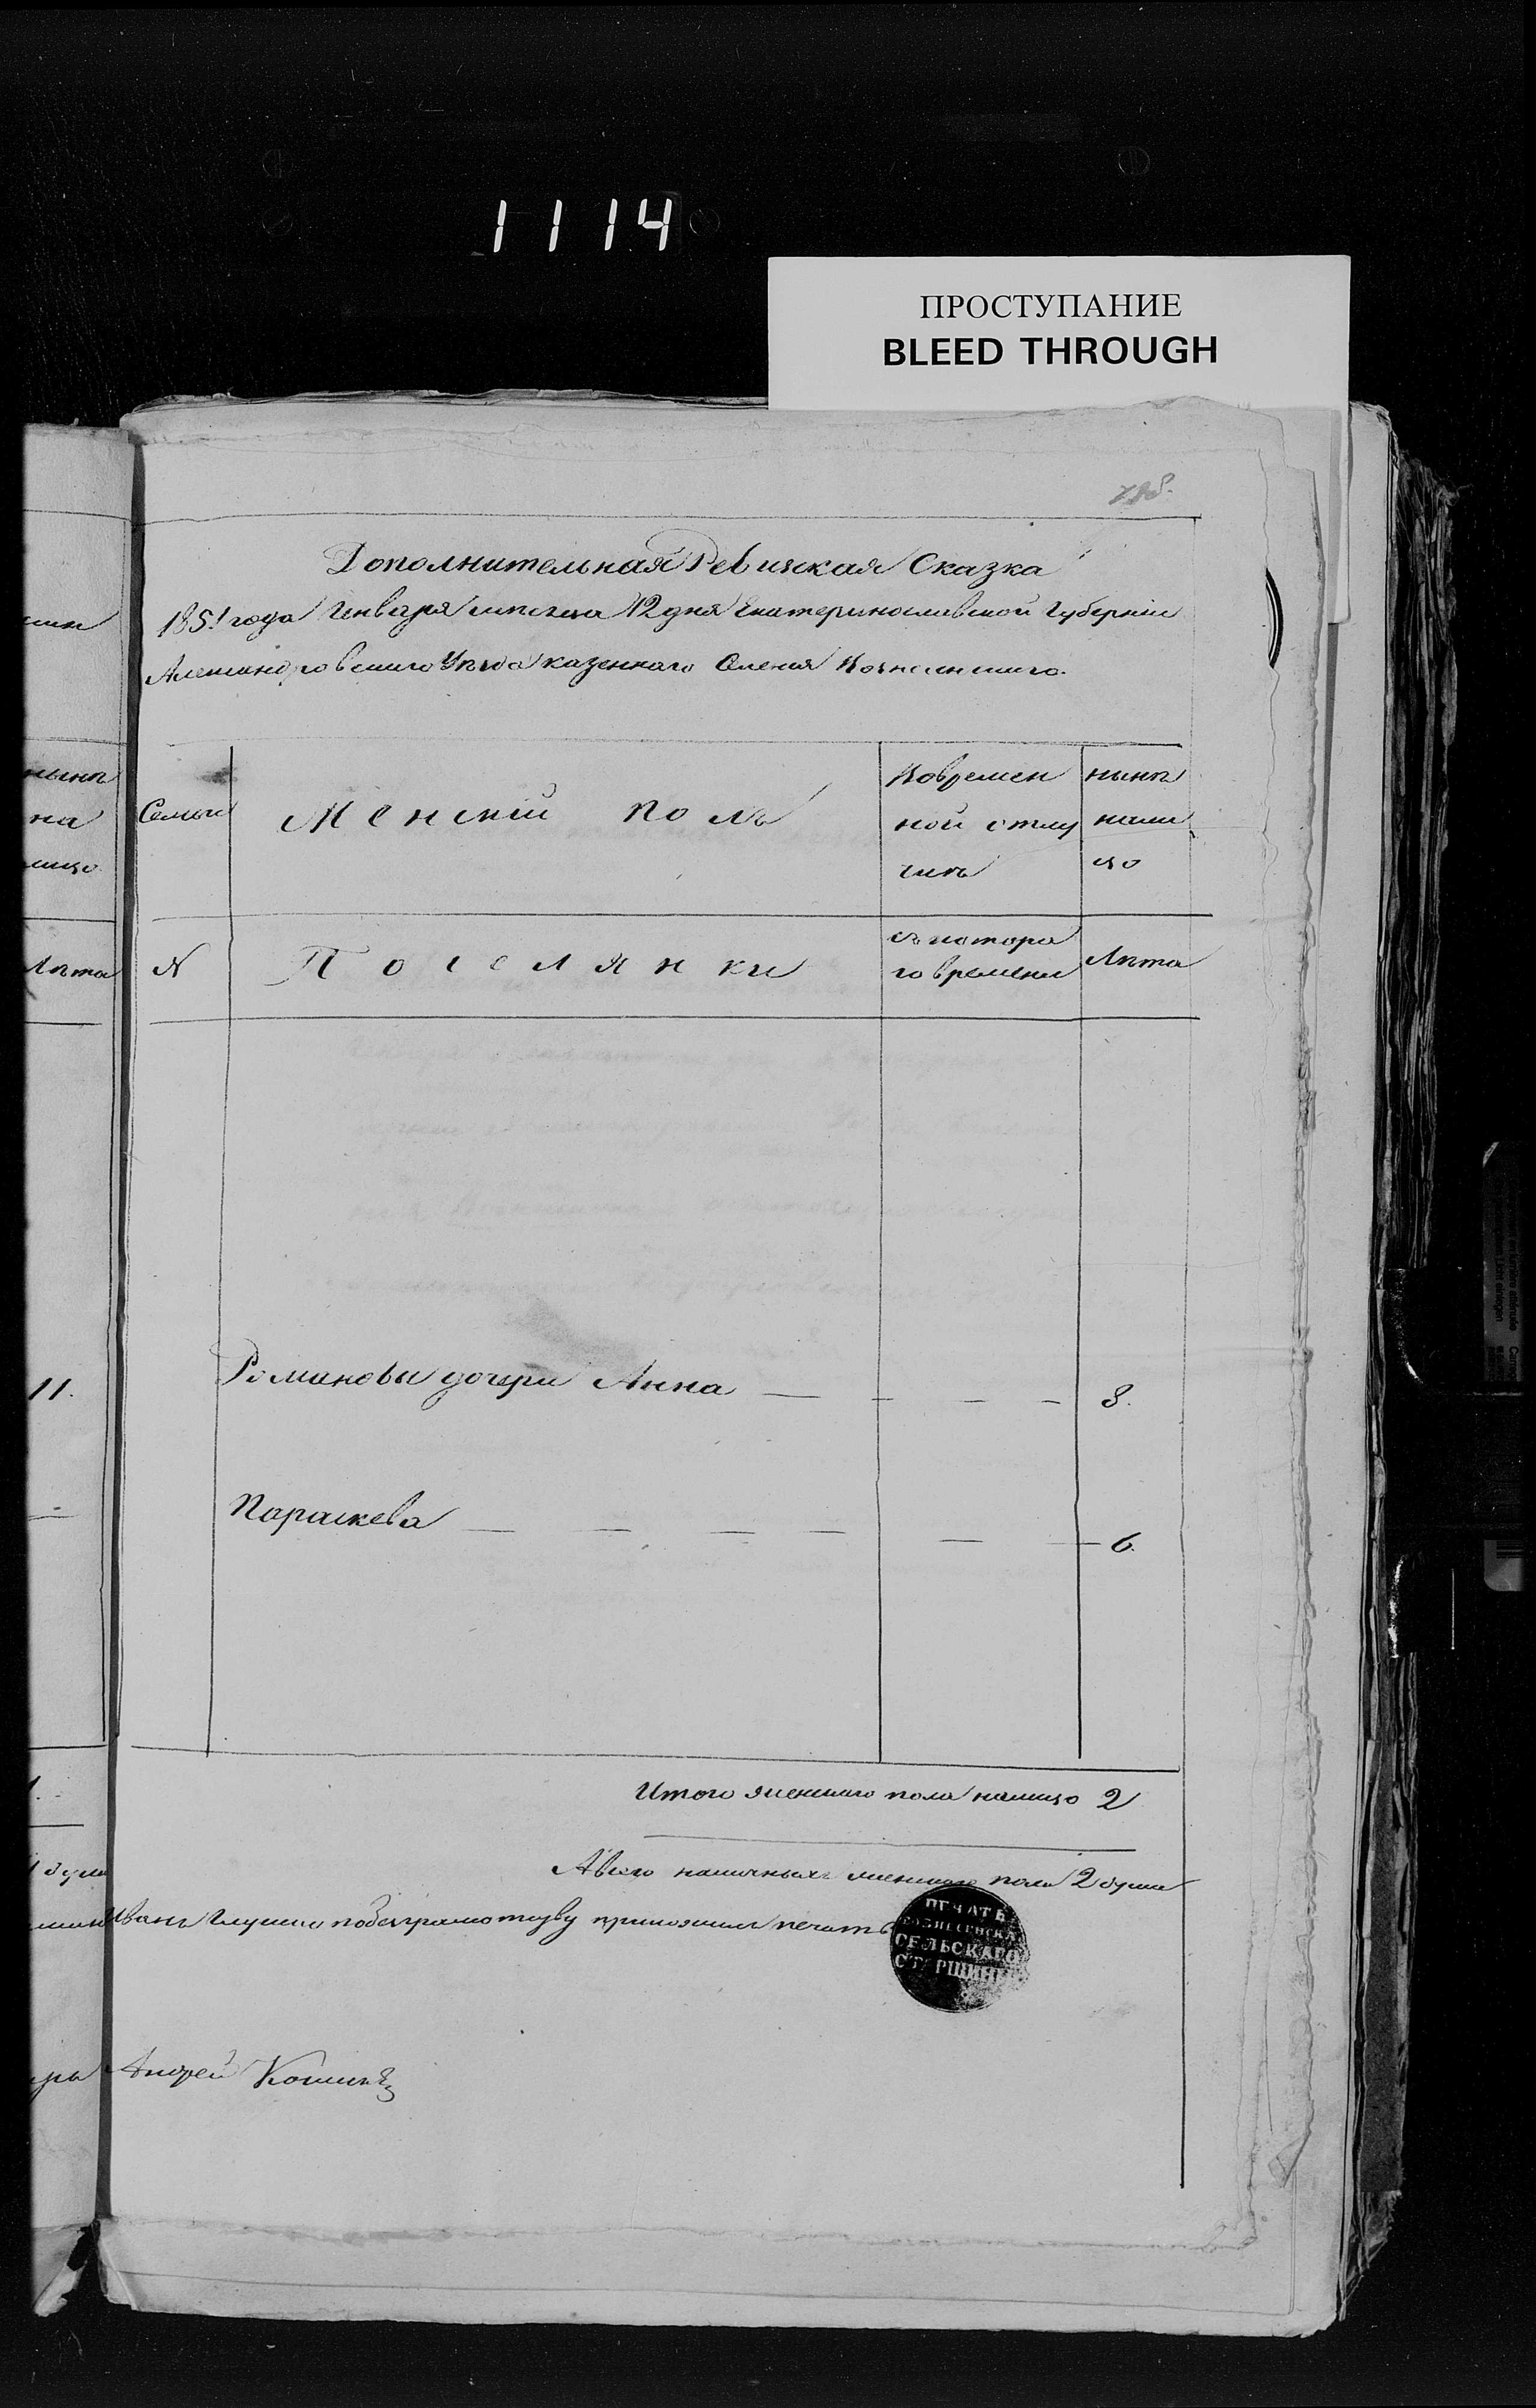 1114
ПРОСТУПАНИЕ
BLEED THROUGH
Дополнительная Ревизская Сказка
1851 года Генваря месяца 12 дня Екатеринославской Губернии
Александровскаго Уезда казеннаго Селения Вознесенскаго.
Семьи
Женский полъ
Вовремен
ной отлу
чкѣ
нынѣ
нали
цо
N
Поселянки
съ котора
го времени
Лѣта
Лѣта
Романовы дочери Анна — — — — 8.
11.
Параскева — — — — — — 6.
Итого женскаго пола налицо 2
А всего наличныхъ женскаго пола 2 души
Иванъ побезграмотству приложилъ печать
ПЕЧАТЬ
ВОЗНЕСЕНСКА
СЕЛЬСКАГО
СТАРШИНЫ
Андрей